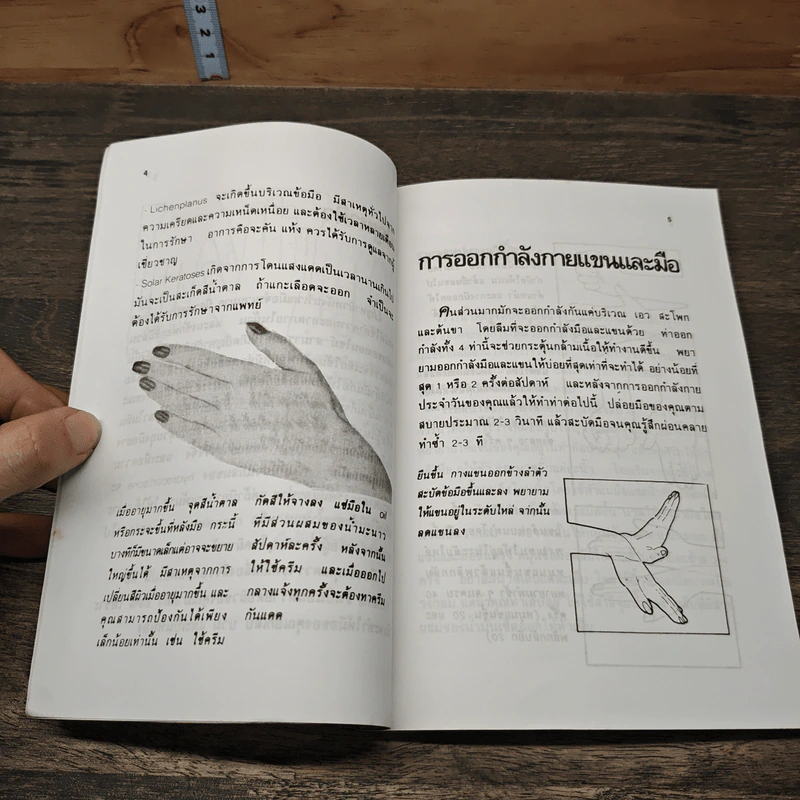 3 2 1
4
- Lichenplanus จะเกิดขึ้นบริเวณข้อมือ มีสาเหตุทั่วไปจาก
ความเครียดและความเหน็ดเหนื่อย และต้องใช้เวลาหลายเดือน
ในการรักษา อาการคือจะคัน แห้ง ควรได้รับการดูแลจากผู้
เชี่ยวชาญ
- Solar Keratoses เกิดจากการโดนแสงแดดเป็นเวลานานเกินไป
มันจะเป็นสะเก็ดสีน้ำตาล ถ้าแกะเลือดจะออก จำเป็นจะ
ต้องได้รับการรักษาจากแพทย์
เมื่ออายุมากขึ้น จุดสีน้ำตาล
หรือกระจะขึ้นที่หลังมือ กระนี้
บางทีก็มีขนาดเล็กแต่อาจจะขยาย
ใหญ่ขึ้นได้ มีสาเหตุจากการ
เปลี่ยนสีผิวเมื่ออายุมากขึ้น และ
คุณสามารถป้องกันได้เพียง
เล็กน้อยเท่านั้น เช่น ใช้ครีม
กัดสีให้จางลง แช่มือใน Oil
ที่มีส่วนผสมของน้ำมะนาว
สัปดาห์ละครั้ง หลังจากนั้น
ให้ใช้ครีม และเมื่อออกไป
กลางแจ้งทุกครั้งจะต้องทาครีม
กันแดด
5
การออกกำลังกายแขนและมือ
คนส่วนมากมักจะออกกำลังกันแค่บริเวณ เอว สะโพก
และต้นขา โดยลืมที่จะออกกำลังมือและแขนด้วย ท่าออก
กำลังทั้ง 4 ท่านี้จะช่วยกระตุ้นกล้ามเนื้อให้ทำงานดีขึ้น พยา
ยามออกกำลังมือและแขนให้บ่อยที่สุดเท่าที่จะทำได้ อย่างน้อยที่
สุด 1 หรือ 2 ครั้งต่อสัปดาห์ และหลังจากการออกกำลังกาย
ประจำวันของคุณแล้วให้ทำท่าต่อไปนี้ ปล่อยมือของคุณตาม
สบายประมาณ 2-3 วินาที แล้วสะบัดมือจนคุณรู้สึกผ่อนคลาย
ทำซ้ำ 2-3 ที
ยืนขึ้น กางแขนออกข้างลำตัว
สะบัดข้อมือขึ้นและลง พยายาม
ให้แขนอยู่ในระดับไหล่ จากนั้น
ลดแขนลง